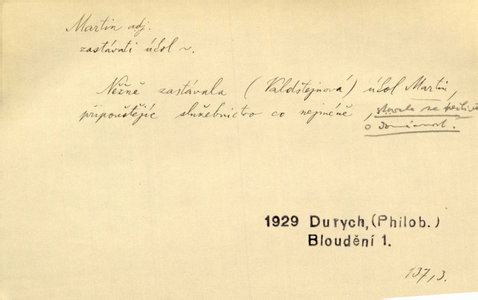 Martin adj.
zastávati účol ~.
Něžně zastávala (Valdštejnová) účol Martin,
připouštějíc služebnictvo co nejméně, starala se pečlivě
o domácnost.
1929 Durych,(Philob.)
Bloudění 1.
137,3.